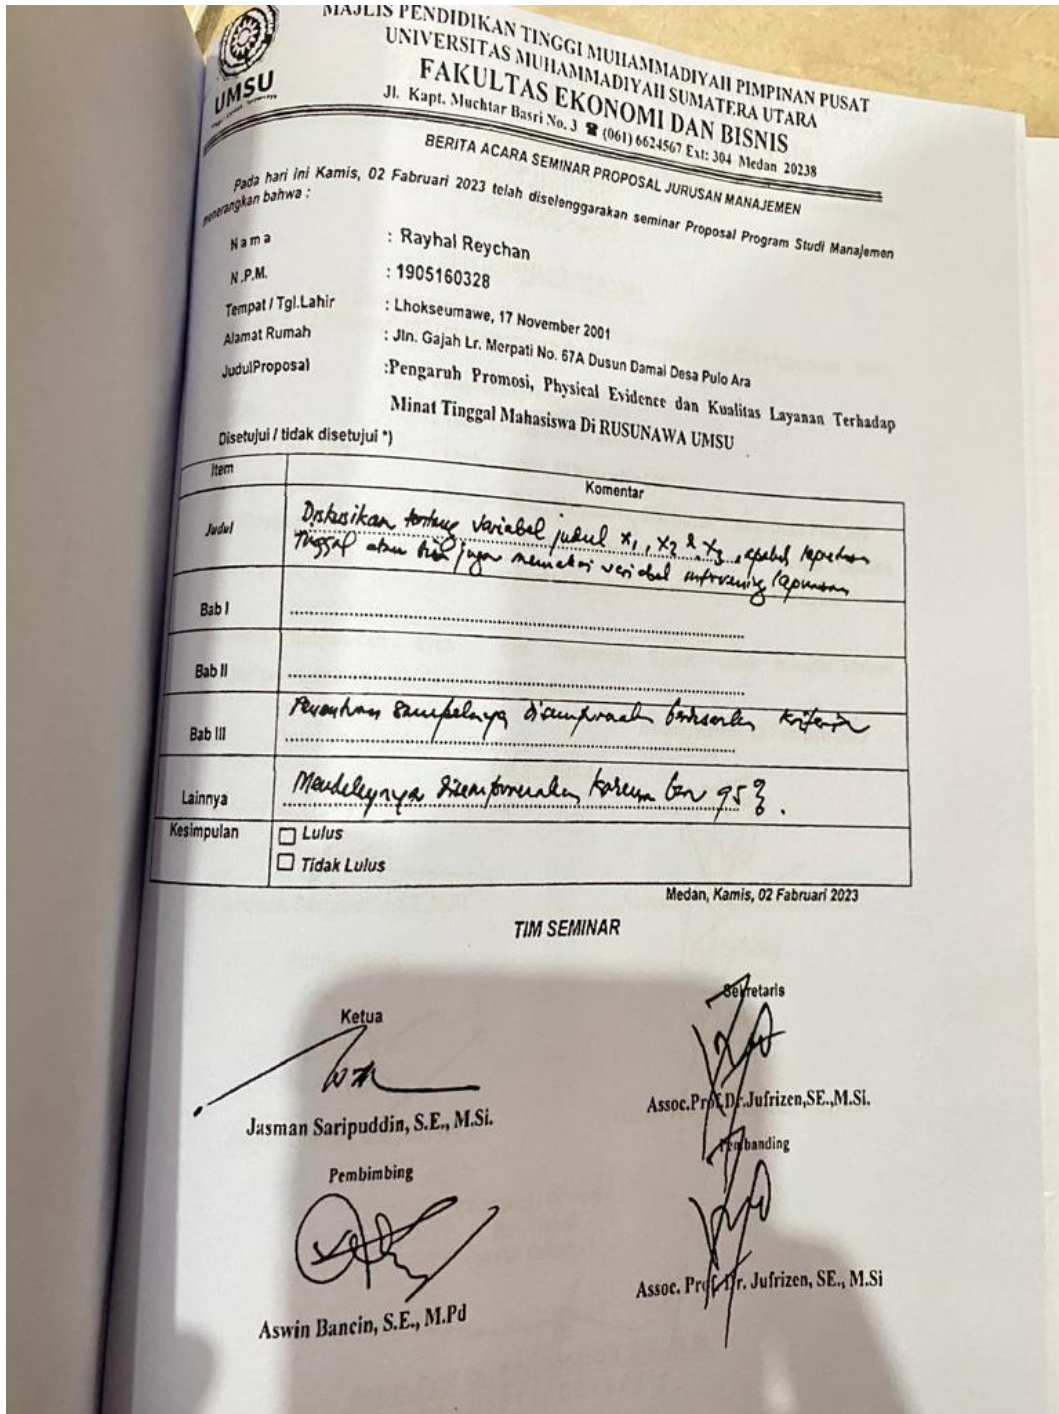 UMSU
MAJLIS PENDIDIKAN TINGGI MUHAMMADIYAH PIMPINAN PUSAT
UNIVERSITAS MUHAMMADIYAH SUMATERA UTARA
FAKULTAS EKONOMI DAN BISNIS
Jl. Kapt. Muchtar Basri No. 3 ☎ (061) 6624567 Ext: 304 Medan 20238
BERITA ACARA SEMINAR PROPOSAL JURUSAN MANAJEMEN
Pada hari ini Kamis, 02 Fabruari 2023 telah diselenggarakan seminar Proposal Program Studi Manajemen
menerangkan bahwa :
Nama : Rayhal Reychan
N.P.M. : 1905160328
Tempat / Tgl.Lahir : Lhokseumawe, 17 November 2001
Alamat Rumah : Jln. Gajah Lr. Merpati No. 67A Dusun Damai Desa Pulo Ara
JudulProposal :Pengaruh Promosi, Physical Evidence dan Kualitas Layanan Terhadap
Minat Tinggal Mahasiswa Di RUSUNAWA UMSU
Disetujui / tidak disetujui *)
Item Komentar
Judul Diskusikan tentang variabel judul x1, x2 & x3, apakah
Tinggal atau juga memakai variabel intervening
Bab I
Bab II
Bab III Penentuan sampelnya disempurnakan berdasarkan kriteria
Lainnya Mendeleynya disempurnakan karena
Kesimpulan Lulus
Tidak Lulus
Medan, Kamis, 02 Fabruari 2023
TIM SEMINAR
Ketua Sekretaris
Jasman Saripuddin, S.E., M.Si. Assoc.Prof.Dr.Jufrizen,SE.,M.Si.
Pembimbing Pembanding
Aswin Bancin, S.E., M.Pd Assoc. Prof. Dr. Jufrizen, SE., M.Si